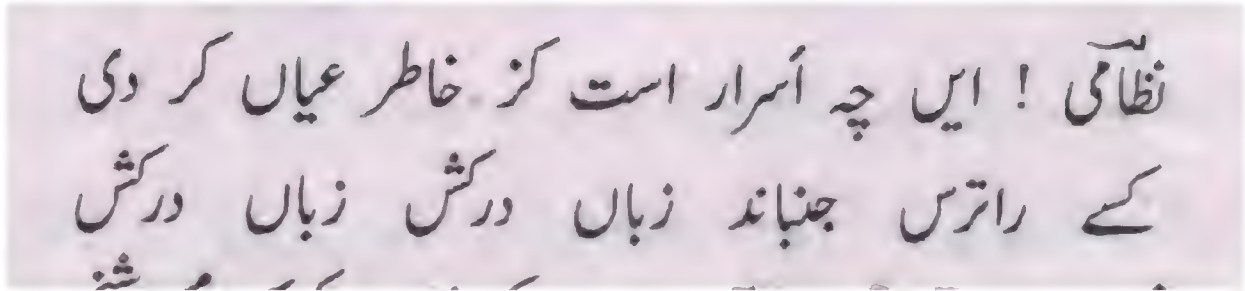 نظامی ! ایں چہ أسرار است کز خاطر عیاں کر دی
کسے راترس جنباند زباں درکش زباں درکش